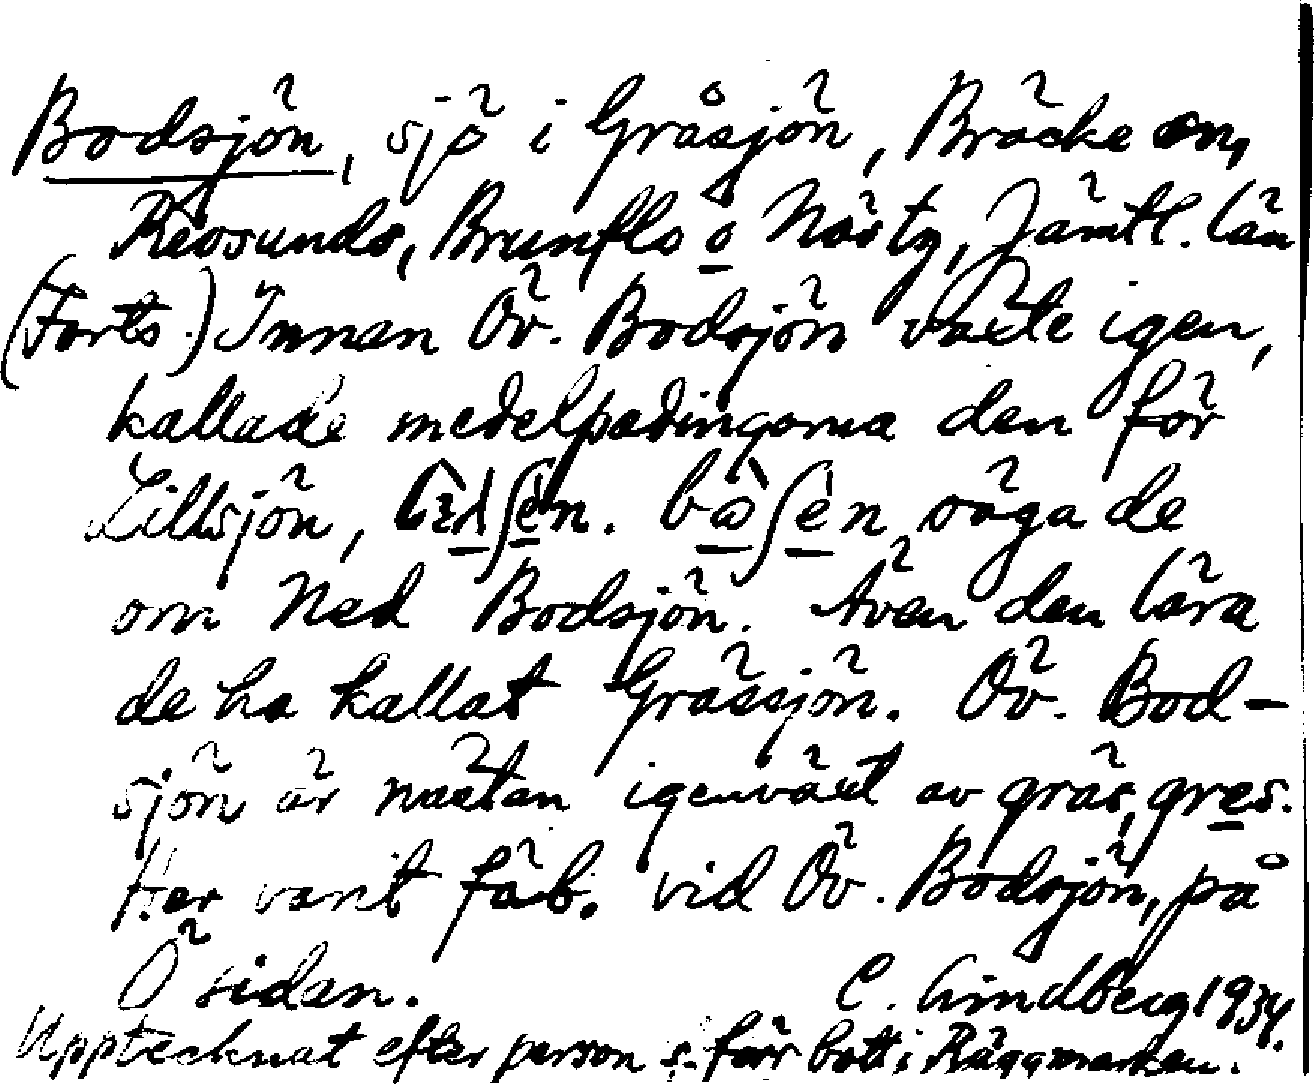 Bodsjön, sjö i Gråsjön, Bräcke sn,
Revsunds, Brunflo o Näs tg, Jämtl. län
(Forts.) Innan Öv. Bodsjön växte igen,
kallade medelpadingarna den för
Lillsjön, bòʃèn säga de
om Ned Bodsjön. Även den lära
de ha kallat Grässjön. Öv. Bod-
sjön är nästan igenväxt av gräs, gres.
Har varit fäb. vid Öv. Bodsjön, på
Ö sidan. C. Lindberg 1934.
Upptecknat efter person s. förr bott i Räggmarken.